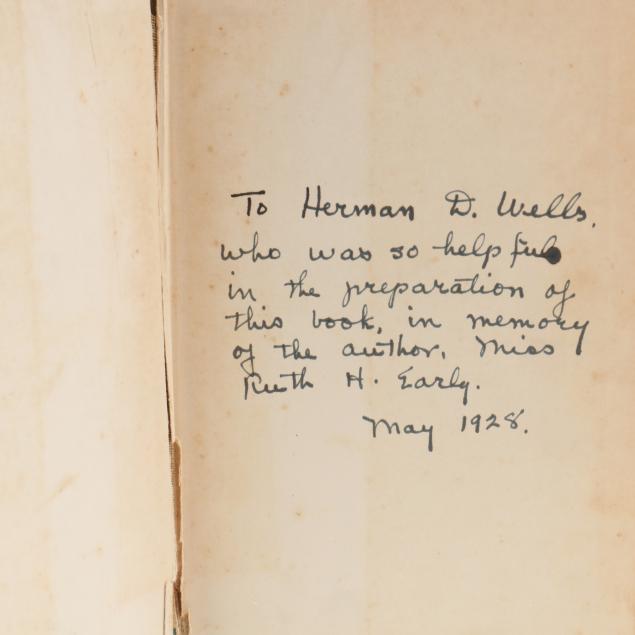 To Herman D. Wells,
who was so helpful
in the preparation of
this book, in memory
of the author, Miss
Ruth H. Early.
May 1928.